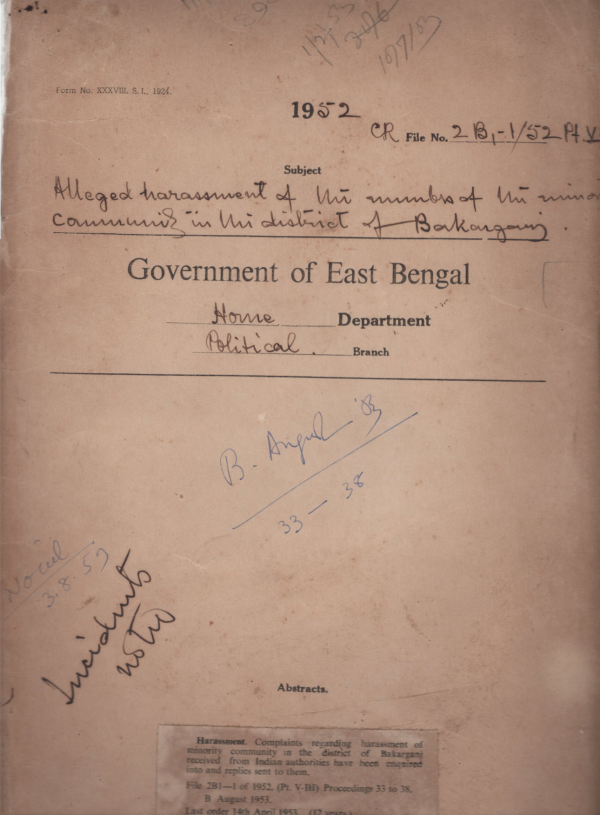 1/7/53
10/7/53
Form No. XXXVIII. S. I., 1924.
1952
CR File No. 2 B1-1/52 Pt V
Subject
Alleged harassment of the members of the minor
community in the district of Bakarganj.
Government of East Bengal
Home Department
Political. Branch
B. August '53
33 — 38
3.8.53
Incidents
noted
Abstracts.
Harassment. Complaints regarding harassment of
minority community in the district of Bakarganj
received from Indian authorities have been enquired
into and replies sent to them.
File 2B1—1 of 1952. (Pt. V-BH) Proceedings 33 to 38.
B August 1953.
Last order 14th April 1953. (12 years.)